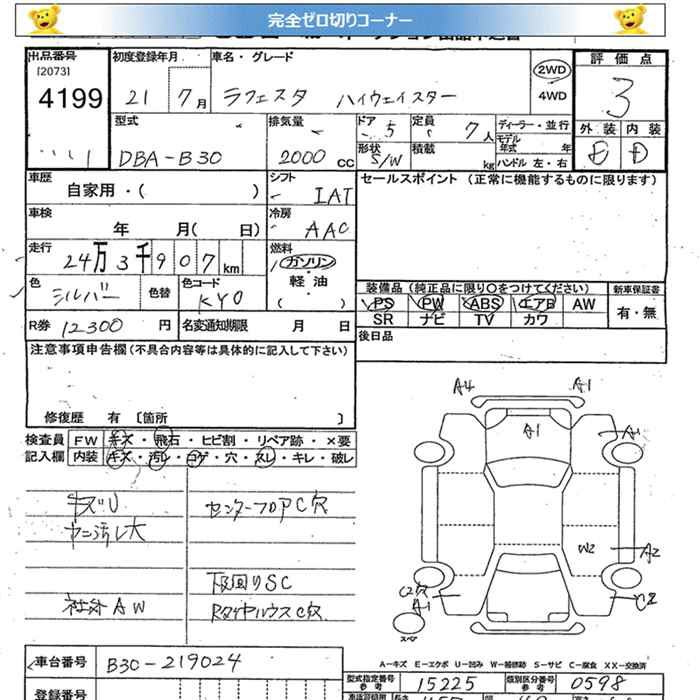 完全ゼロ切りコーナー
出品番号 初度登録年月 車名・グレード 評価点
[2073]
4199 21 7月 ラフェスタ ハイウェイスター 2WD 4WD 3
外装 内装
E D
型式 排気量 ドア 定員 ディーラー・並行
DBA-B30 2000 CC 5 7人 モデル年式 年
形状 S/W 積載 kg ハンドル 左・右
車歴 シフト セールスポイント (正常に機能するものに限ります)
自家用・( ) IAT
車検 冷房
年 月( 日) AAC
走行 燃料
24万3千907km ガソリン
軽油
( )
色 シルバー 色替 色コード KY0
装備品 (純正品に限り○をつけてください) 新車保証書
PS PW ABS エアB AW 有・無
SR ナビ TV カワ
R券 12300円 名変通知期限 月 日
後日品
注意事項申告欄 (不具合内容等は具体的に記入して下さい)
修復歴 有 〔箇所 〕
検査員 FW キズ・飛石・ヒビ割・リペア跡・×要
記入欄 内装 キズ・汚レ・コゲ・穴・スレ・キレ・破レ
A4 A1
A1 A1
キズU センターフロアC穴
ヤニ汚レ大
W2 A2
下回りSC
C2穴 A1 C2
社外AW RタイヤハウスC穴
スペア
A-キズ E-エクボ U-凹み W-補修跡 S-サビ C-腐食 XX-交換済
車台番号 B30-219024
型式指定番号 参考 15225 類別区分番号 参考 0598
登録番号